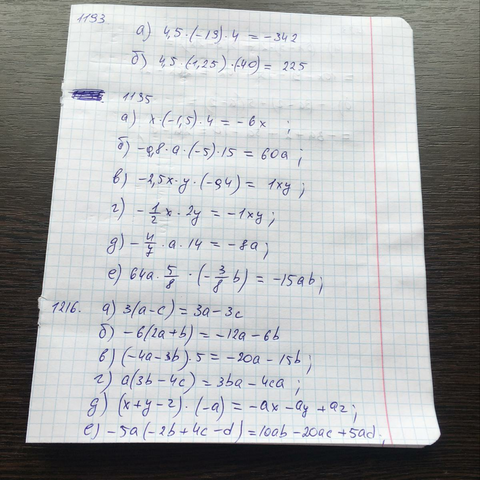 1193.
а) 4,5·(-19)·4 = -342
б) 4,5·(1,25)·(40) = 225
1135
а) x·(-1,5)·4 = -6x ;
б) -0,8·a·(-5)·15 = 60a ;
в) -2,5x·y·(-0,4) = 1xy ;
г) -1/2 x·2y = -1xy ;
д) -4/7·a·14 = -8a ;
е) 64a·5/8·(-3/8 b) = -15ab ;
1216. а) 3(a-c) = 3a-3c
б) -6(2a+b) = -12a-6b
в) (-4a-3b)·5 = -20a-15b ;
г) a(3b-4c) = 3ba-4ca ;
д) (x+y-z)·(-a) = -ax-ay+az ;
е) -5a(-2b+4c-d) = 10ab-20ac+5ad ;